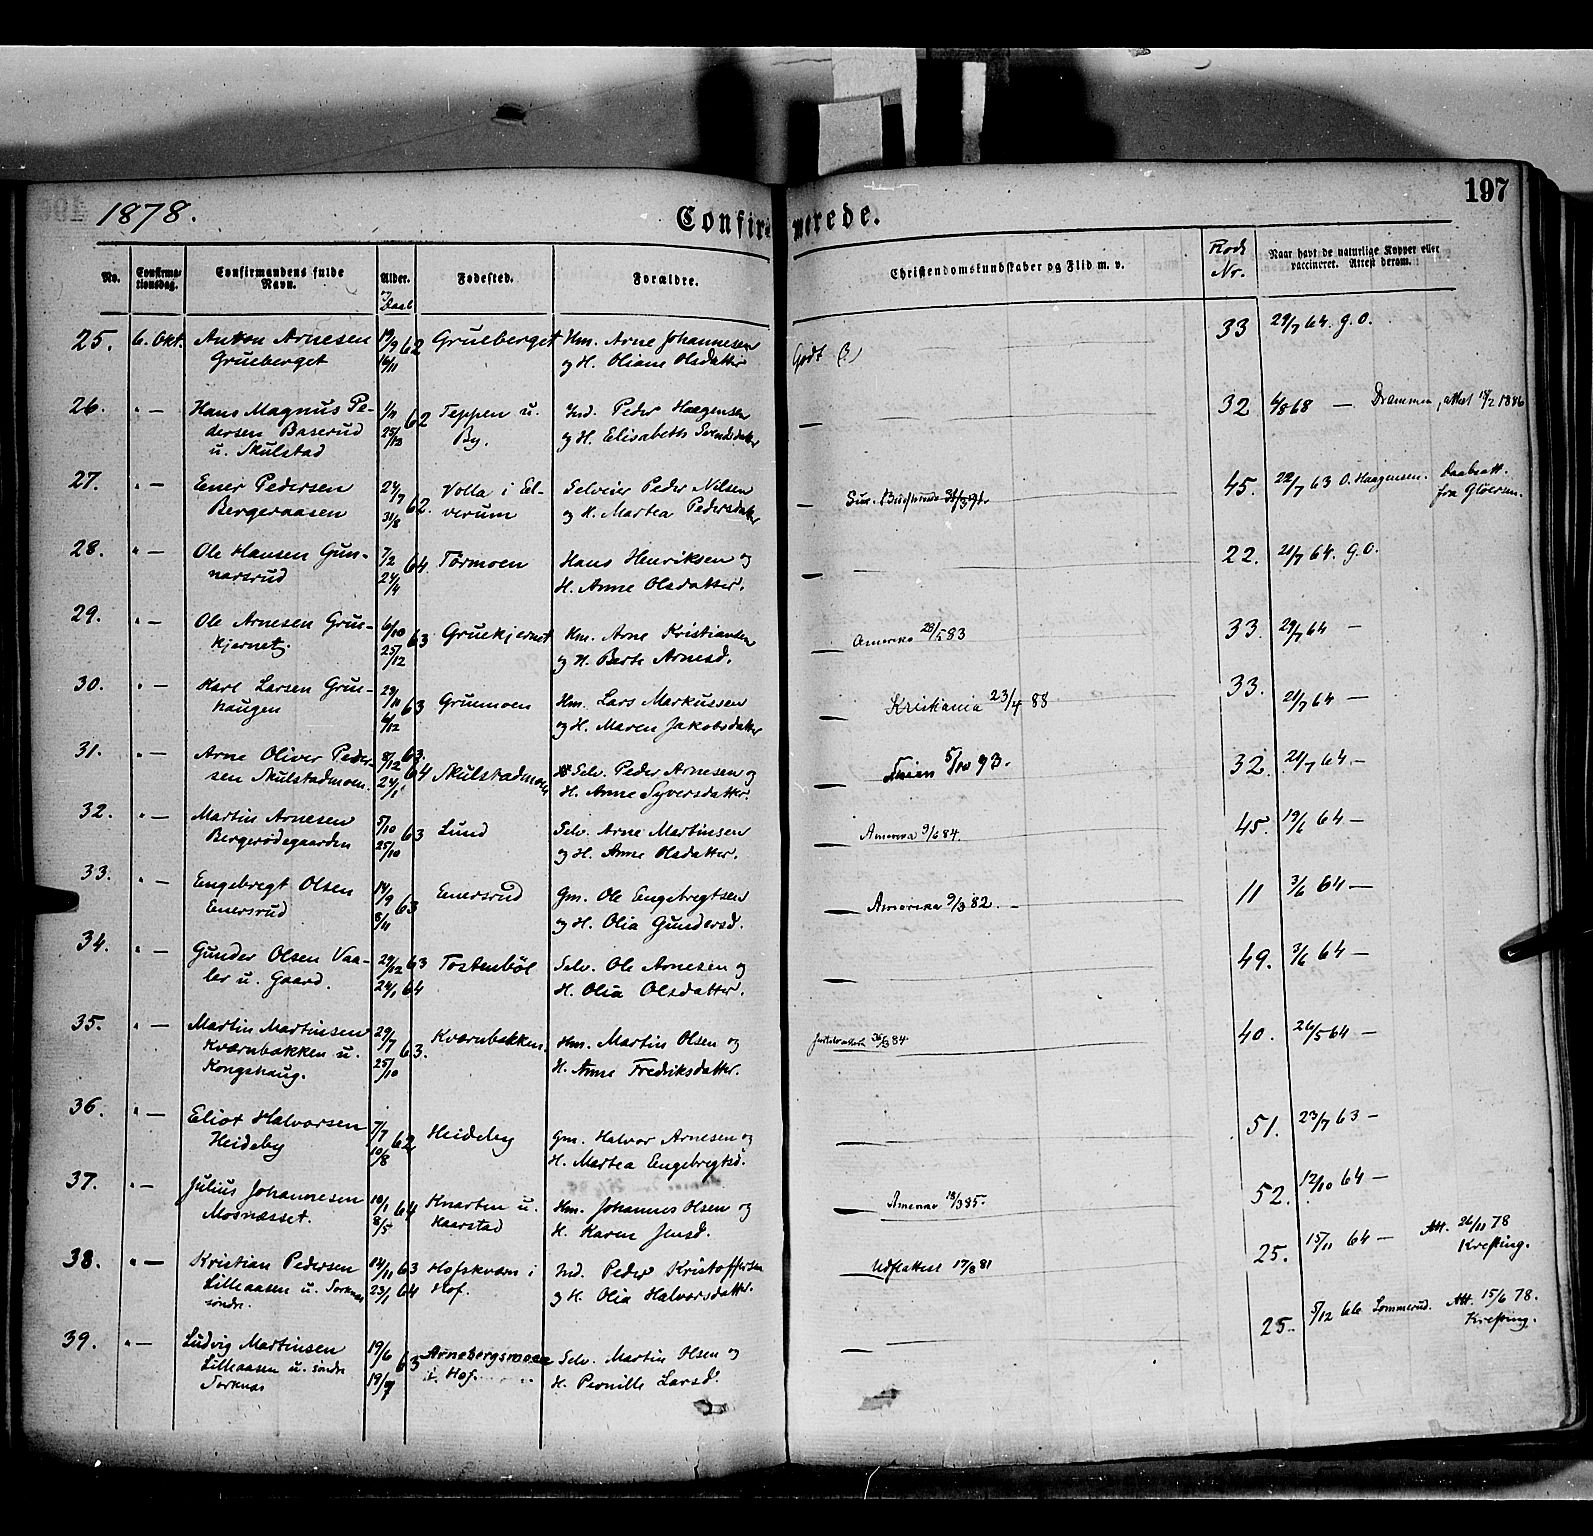 1878.
Confirmerede.
197
No.
Confirma-
tionsdag.
Confirmandens fulde
Navn.
Alder.
og Daab
Fødested.
Forældre.
Christendomskundskaber og Flid m. v.
Rode
Nr.
Naar havt de naturlige Kopper eller
vaccineret. Attest derom.
25. 6. Okt. Anton Arnesen 19/9 62 Grueberget Hm. Arne Johannesen Godt 33 29/7 64. g.O.
Grueberget 16/11 og H. Oliane Olsdatter
26. " — Hans Magnus Pe- 62 Teppen u. Ind. Peder Haagensen — 32 6/8 68 — Drammen, attest 1886
dersen Baserud 25/12 By. og H. Elisabeth Svendsdatter
u. Skulstad
27. " — Ener Pedersen 24/7 62. Volla i El- Selveier Peder Nilsen — 45. 22/7 63 O. Haagensen. Daabsatt.
Bergeraasen 31/8 verum og H. Martea Pedersdatter fra
28. " — Ole Hansen Gun- 7/2 64. Tørmoen Hans Henriksen og — 22. 21/7 64. g.O.
narsrud 24/4 H. Anne Olsdatter.
29. " — Ole Arnesen Grue- 6/10 63 Gruekjernet Hm. Arne Kristiansen — Amerika 28/5 83 33. 29/7 64 —
kjernet. 25/12 og H. Berte Arnesd.
30. " — Karl Larsen Grue- 29/10 63 Gruemoen Hm. Lars Markussen — Kristiania 23/4 88 33. 21/7 64 —
haugen 6/12 og H. Maren Jakobsdatter
31. " — Arne Oliver Peder- 8/12 63. Skulstadmoen Selv. Peder Arnesen og — 5/10 93. 32. 21/7 64 —
sen Skulstadmoen. 24/1 64 H. Anne Syversdatter.
32. " — Martin Arnesen 5/10 63 Lund Selv. Arne Martinsen — Amerika 9/6 84. 45. 19/6 64 —
Bergerødegaarden 25/10 og H. Anne Olsdatter.
33. " — Engebregt Olsen 14/9 63 Enersrud Gm. Ole Engebregtsen — Amerika 9/3 82. 11 3/6 64 —
Enersrud 8/11 og H. Olia Gundersd.
34. " — Gunder Olsen Vaa- 29/12 63 Tostenbøl Selv. Ole Arnesen og — 49. 3/6 64 —
ler u. Gaard. 24/1 64 H. Olia Olsdatter.
35. " — Martin Martinsen 29/7 63. Kværnbakken. Hm. Martin Olsen og 84 40. 26/5 64 —
Kværnbakken u. 25/10 H. Anne Fredriksdatter.
Kongshaug.
36. " — Eliot Halvorsen 7/7 62 Heideby Gm. Halvor Arnesen og — 51. 23/7 63 —
Heideby 10/8 H. Martea Engebregtsd.
37. " — Julius Johannesen 10/1 64 Knarten u. Hm. Johannes Olsen og — 18/3 85. 52. 12/10 64 —
Mosnæsset. 8/5 Kaarstad H. Karen Jensd.
38. " — Kristian Pedersen 14/11 63 Hofskværn i Ind. Peder Kristoffersen — Udflattest 17/8 81 25. 15/11 64 — Att. 26/11 78
Lilleaasen u. Torknæs 23/1 64 Hof. og H. Olia Halvorsdatter. Krefting.
søndre.
39. " — Ludvig Martinsen 19/6 63 Arnebergsmoen Selv. Martin Olsen og — 25. 5/12 66 Lommerud. Att. 15/6 78.
Lilleaasen u. søndre 19/7 i Hof. H. Pernille Larsd. Krefting.
Torknæs